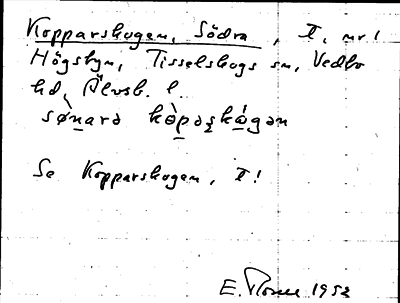 Kopparskogen, Södra, I, nr 1
Högsbyn, Tisselskogs sn, Vedbo
hd, Älvsb. l.
sø̀narə kòpaʂkágən
Se Kopparskogen, I!
E. 1953